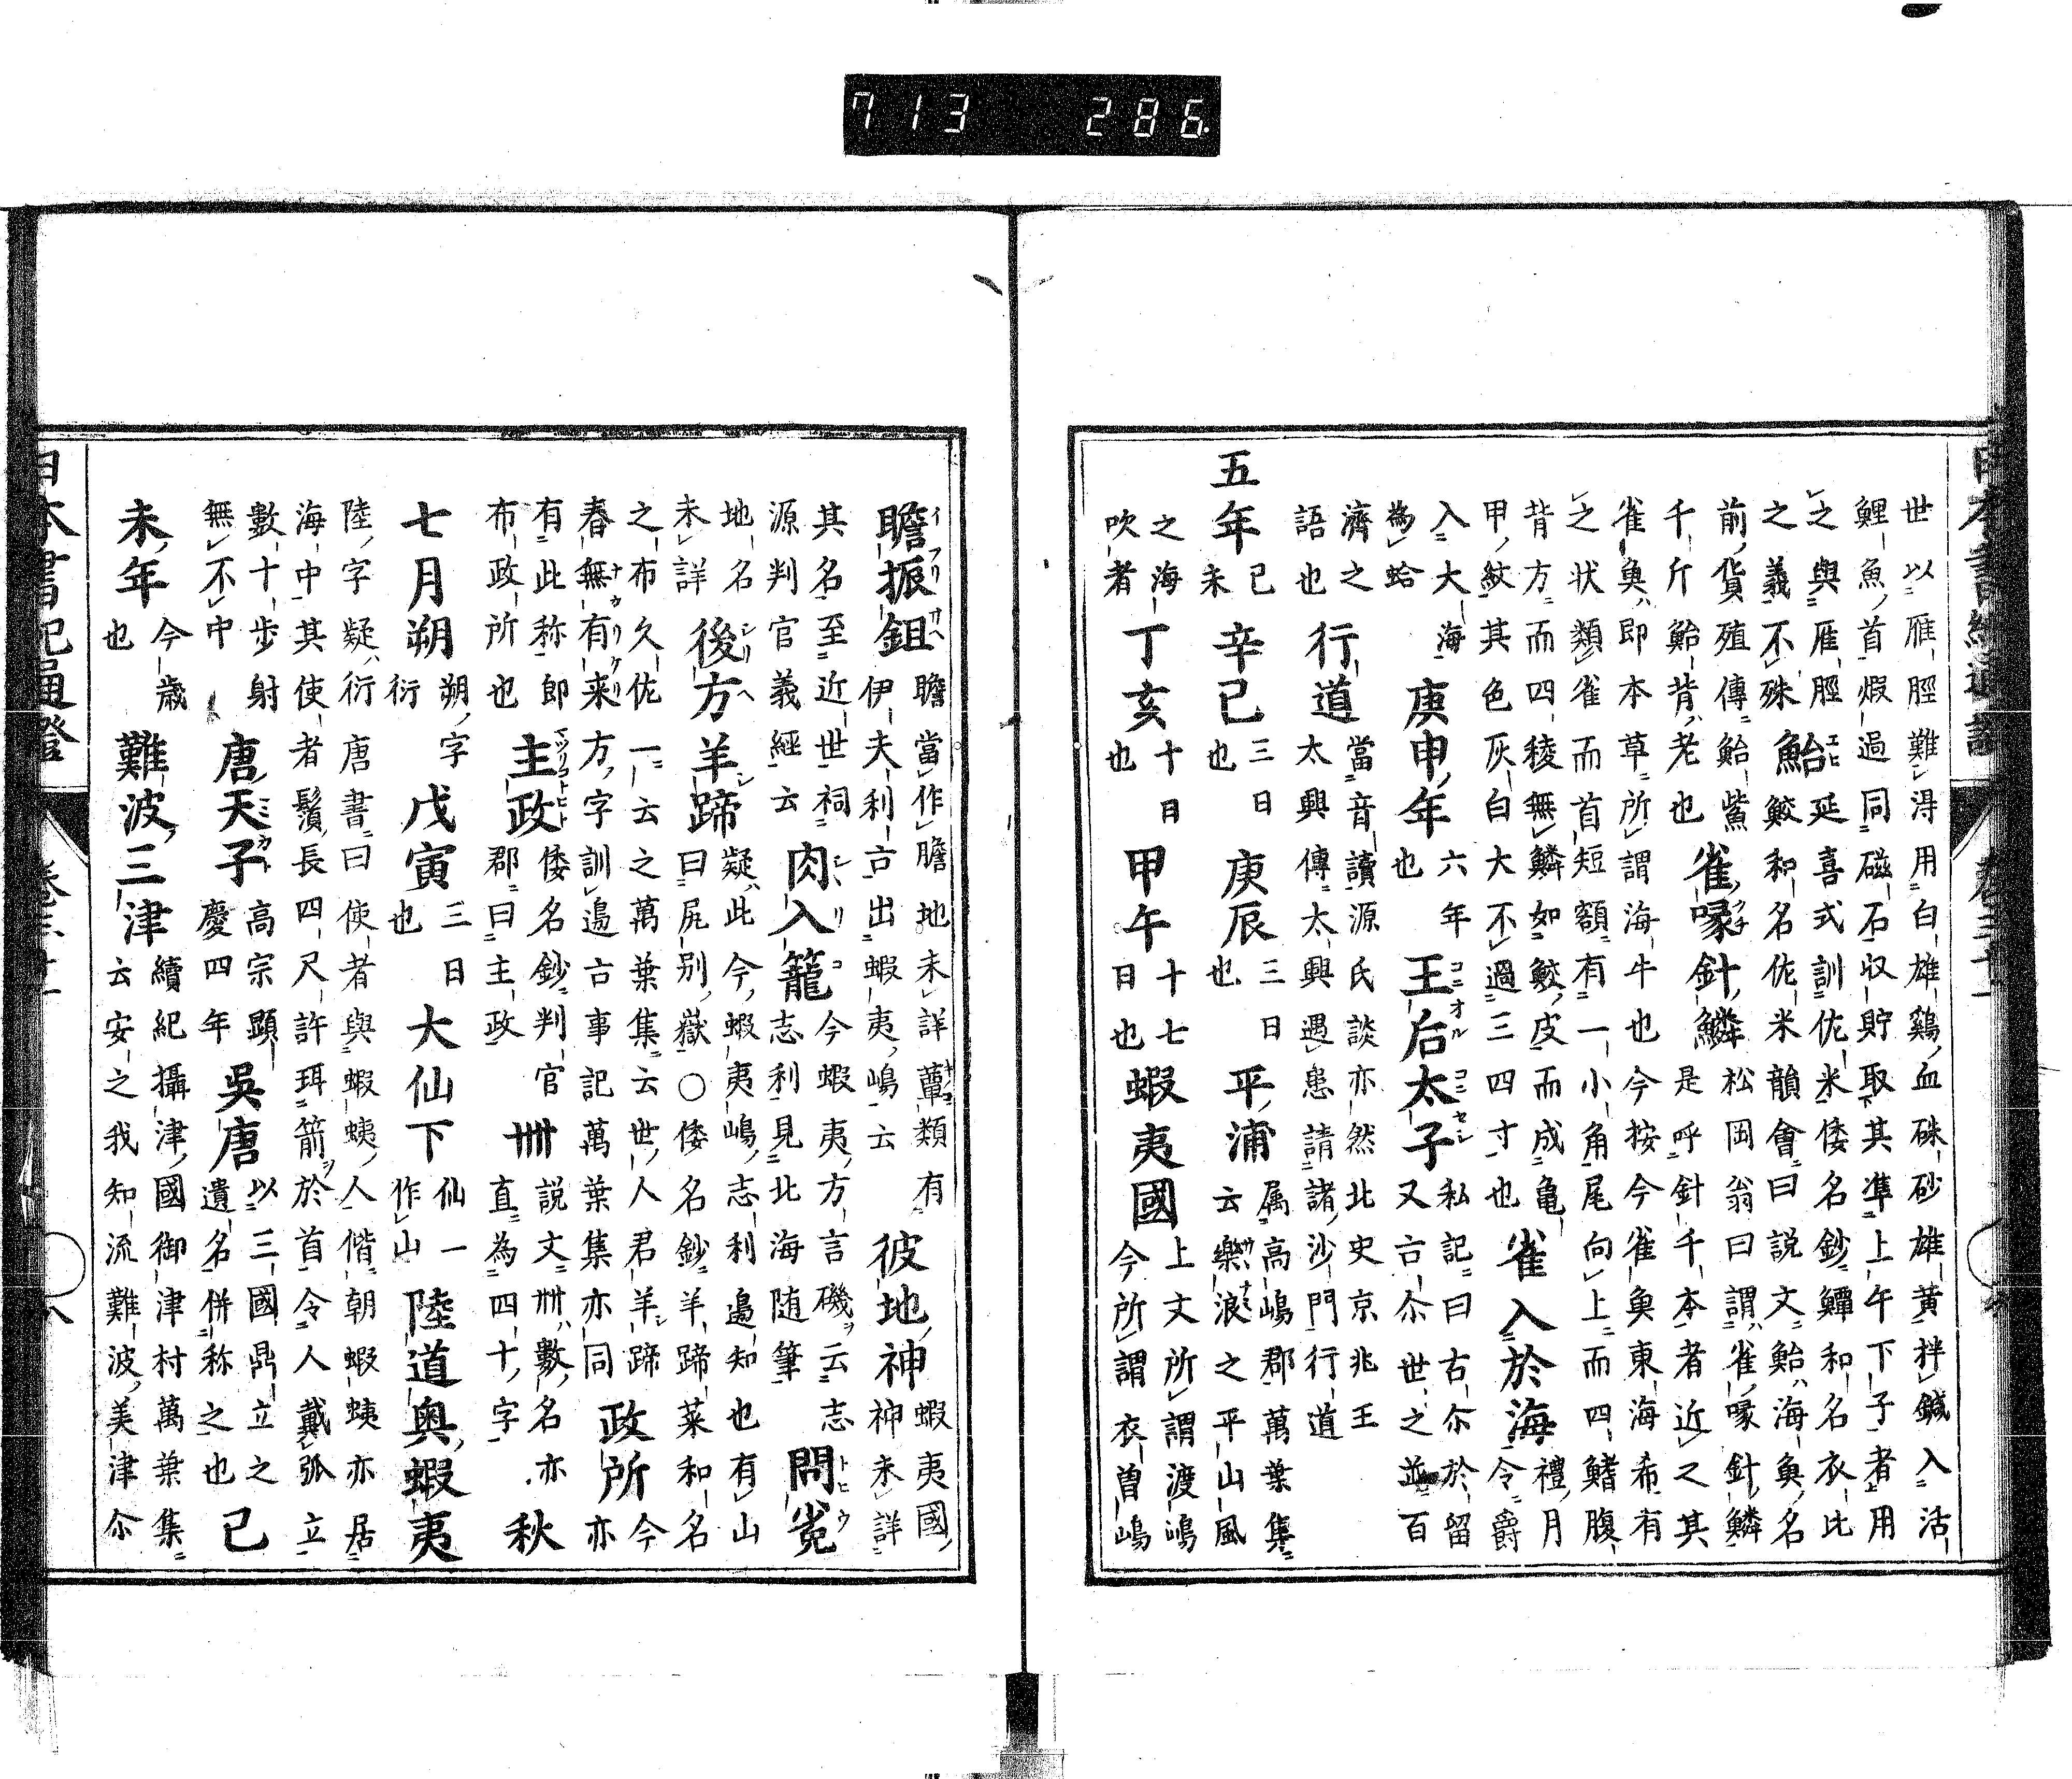 世以雁脛難淂用白雄鷄血硃砂雄黄拌鍼入活
鯉魚首煆過同磁石収貯取其準上午下子者用
之與雁脛之義不殊 鮐 延喜式訓佐米倭名鈔鱓和名衣比鮫和名佐米韻會曰説文鮐海魚名
前貨殖傳鮐鮆千斤鮐背老也 雀喙針鱗 松岡翁曰謂雀喙針鱗是呼針千本者近之其
雀魚即本草所謂海牛也今按今雀魚東海希有
之状類雀而首短額有一小角尾向上而四鰭腹
背方而四稜無鱗如鮫皮而成亀甲紋其色灰白大不過三四寸也 雀入於海 禮月令爵
入大海為蛤 庚申年 六年也 王后太子 私記曰古尒於留又古尒世之並百
濟之語也 行道 當音讀源氏談亦然北史京兆王太興傳太興遇患請諸沙門行道
五年 己未 辛巳 三日也 庚辰 三日也 平浦 属高嶋郡萬葉集云樂浪之平山風
之海吹者 丁亥 十日也 甲午 十七日也 蝦夷國 上文所謂渡嶋今所謂衣曽嶋
瞻振鉏 瞻當作膽地未詳萬類有伊夫利古出蝦夷嶋云 彼地神 蝦夷國神未詳
其名至近世祠源判官義經云 肉入籠 今蝦夷方言磯云志志利見北海随筆 問菟
地名未詳 後方羊蹄 疑此今蝦夷嶋志利邉知也有山曰尻别嶽○倭名鈔羊蹄菜和名
之布久佐一云之萬葉集云世人君羊蹄春無有来方字訓邉古事記萬葉集亦同 政所 今亦
有此称即布政所也 主政 倭名鈔判官郡曰主政 卌 説文卌數名亦直為四十字 秋
七月朔 朔字衍 戊寅 三日也 大仙下 仙一作山 陸道奥蝦夷
陸字疑衍唐書曰使者與蝦蛦人偕朝蝦蛦亦居
海中其使者鬚長四尺許珥箭於首令人戴弧立
數十歩射無不中 唐天子 高宗顯慶四年 吳唐 以三國鼎立之遺名併称之也 己
未年 今歳也 難波三津 續紀攝津國御津村萬葉集云安之我知流難波美津尒
日本書紀通證 八
713 286